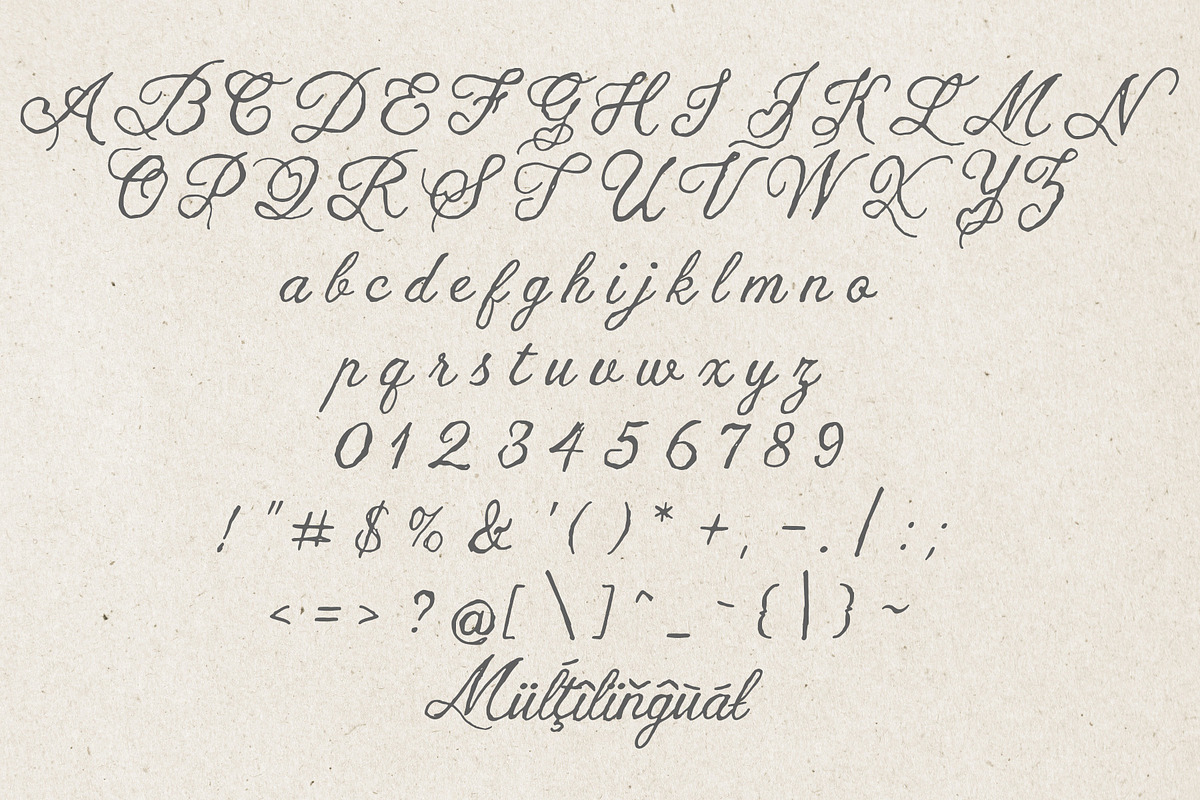 A B C D E F G H I J K L M N
O P Q R S T U V W X Y Z
a b c d e f g h i j k l m n o
p q r s t u v w x y z
0 1 2 3 4 5 6 7 8 9
! " # $ % & ' ( ) * + , - . / : ;
< = > ? @ [ \ ] ^ _ ` { | } ~
Mülţîliňĝùáł